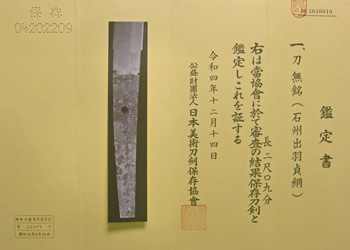 鑑定書
一、刀 無銘(石州出羽貞綱)
長 二尺〇九分
右は當協會に於て審査の結果保存刀剣と
鑑定しこれを証する
令和四年十二月十四日
公益財團法人日本美術刀剣保存協會
保存
04202209
№ 3030010